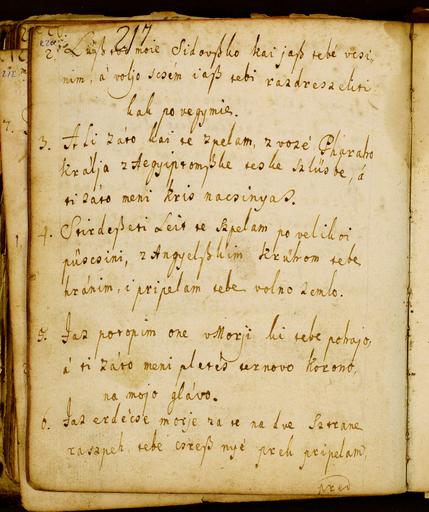 217
2. Lüsztvo moie Sidovßko kai jaß tebé vcsi,
nim, á voljo scsém iaß tebi razdreszeliti
kak povegymie.
3. Ali záto kai te zpelam, z vozé Pharaho
Králja z Aegyiptomßke teske szlüsbe, á
ti záto meni kris nacsinyaß.
4. Stirdeßeti Leit te szpelam po velikoi
püscsini, z Angyelßkim krühom tebe
hránim, i pripelam tebe volno zemlo.
5. Jaz potopim one v Morji ki tebe pohajo,
á ti záto meni pletés ternovo korono,
na mojo glávo.
6. Jaz erdécse morje za te na dve Sztrane
razpeh, tebé csreß nyé preh pripelam,
pred